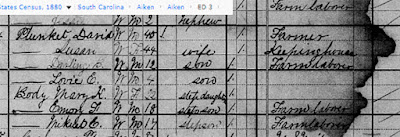 States Census, 1880 • South Carolina › Aiken › Aiken › ED 3
Jessie W M 2 Nephew Farm laborer
Plunket David W M 40 1 Farmer
Susan W F 44 wife 1 Keeping house
W M 12 son 1 Farm laborer
Lovie E. W M 4 son 1
Body Mary K. W F 22 step daugh 1
Emory L. W M 18 stepson 1 Farm laborer
W M 17 stepson Farm laborer